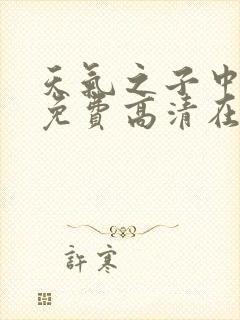 天氣之子中
免費高清在
許寒